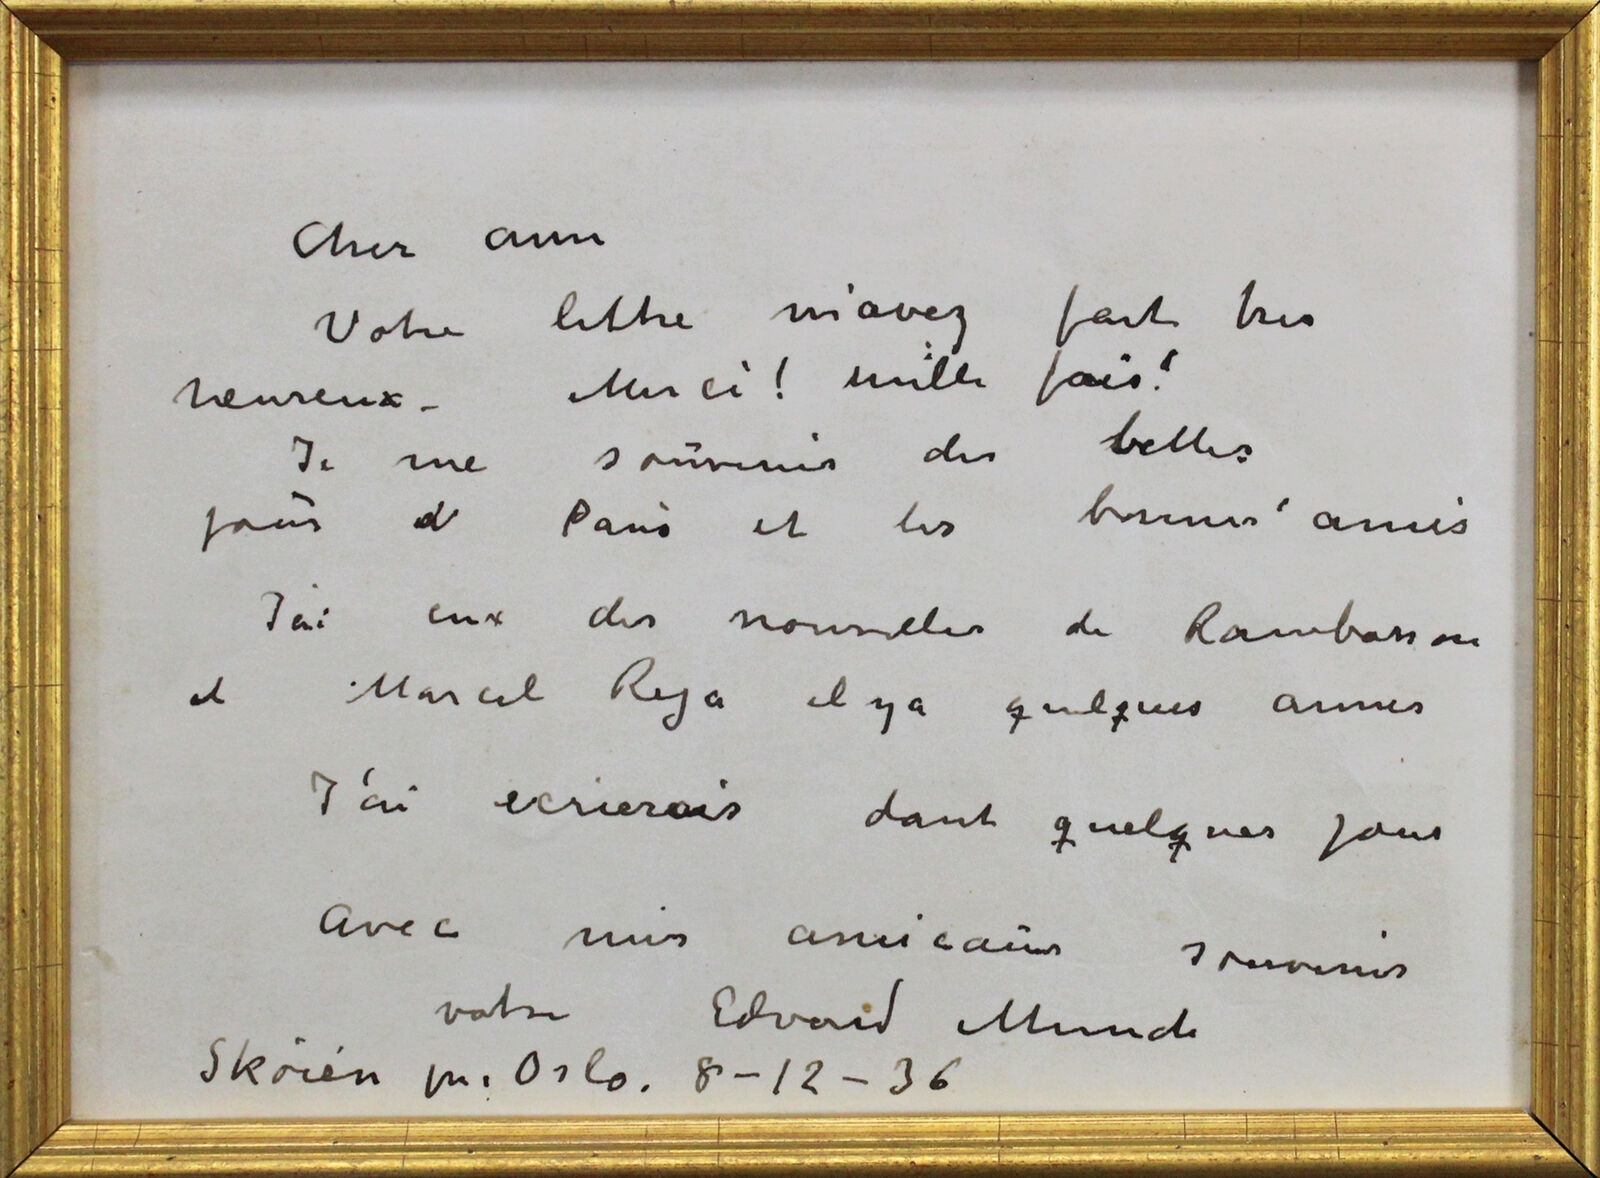 Cher ami
Votre lettre m'avez fait tres
heureux - Merci! mille fois!
Je me souvenir des belles
jours d Paris et les bonnes amis
J'ai eux des nouvelles de Rambosson
et Marcel Reja il ya quelques annes
J'ai ecrierais dant quelques jours
Avec mes amicaus souvenirs
votre Edvard Munch
Sköien pr. Oslo. 8-12-36